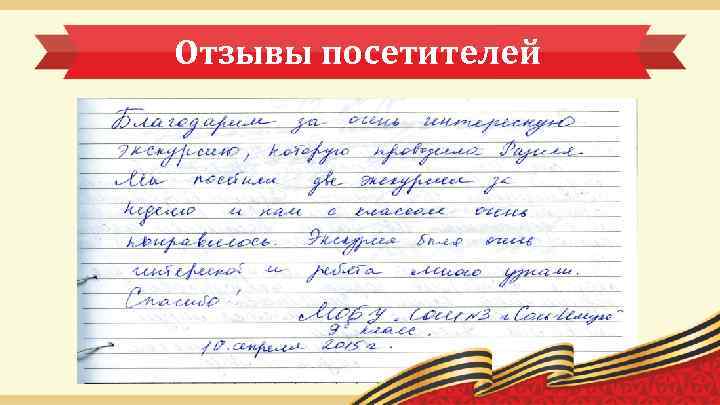 Отзывы посетителей
Благодарим за очень интересную
экскурсию, которую проводила Разиля.
Мы посетили две экскурсии за
неделю и нам с классом очень
понравилось. Экскурсия была очень
интересной и ребята много узнали.
Спасибо!
МОБУ "СОШ №3 г. Соль-Илецка"
9 класс.
10 апреля 2015 г.